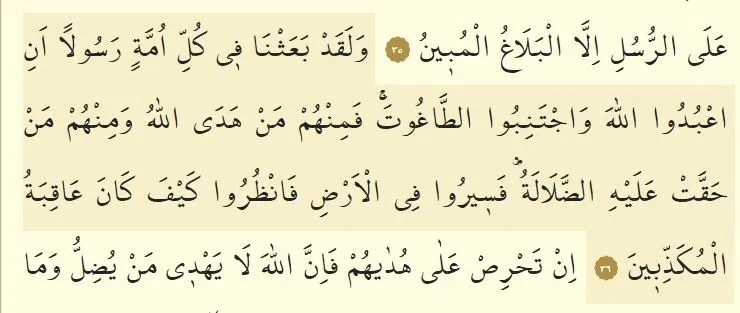 عَلَى الرُّسُلِ اِلَّا الْبَلَاغُ الْمُب۪ينُ ٣٥ وَلَقَدْ بَعَثْنَا ف۪ي كُلِّ اُمَّةٍ رَسُولاً اَنِ
اعْبُدُوا اللّٰهَ وَاجْتَنِبُوا الطَّاغُوتَۚ فَمِنْهُمْ مَنْ هَدَى اللّٰهُ وَمِنْهُمْ مَنْ
حَقَّتْ عَلَيْهِ الضَّلَالَةُۜ فَس۪يرُوا فِي الْاَرْضِ فَانْظُرُوا كَيْفَ كَانَ عَاقِبَةُ
الْمُكَذِّب۪ينَ ٣٦ اِنْ تَحْرِصْ عَلٰى هُدٰيهُمْ فَاِنَّ اللّٰهَ لَا يَهْد۪ي مَنْ يُضِلُّ وَمَا